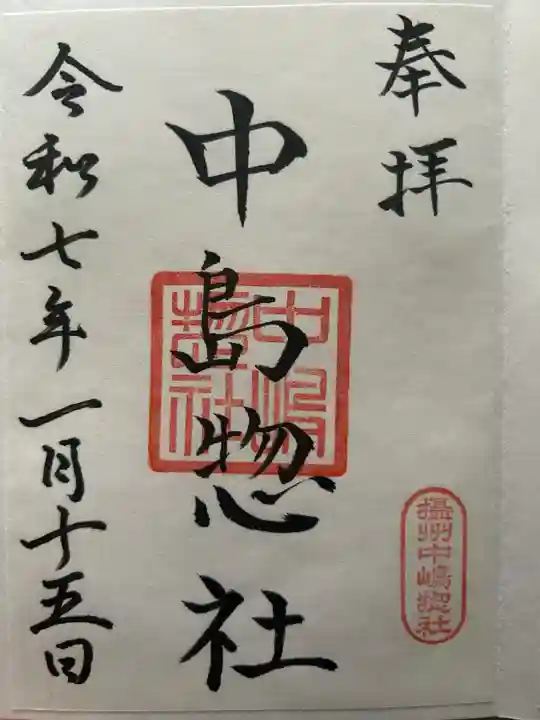 奉拝
中島惣社
中嶋惣社
摂州中嶋惣社
令和七年一月十五日